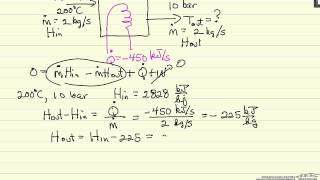 200°C
10 bar
ṁ = 2 kg/s
Hin
Tout = ?
ṁ = 2 kg/s
Hout
Q̇ = -450 kJ/s
0 = ṁHin - ṁHout + Q̇ + 0
200°C, 10 bar Hin = 2828 kJ/kg
Hout - Hin = Q̇/ṁ = -450 kJ/s / 2 kg/s = -225 kJ/kg
Hout = Hin - 225 =